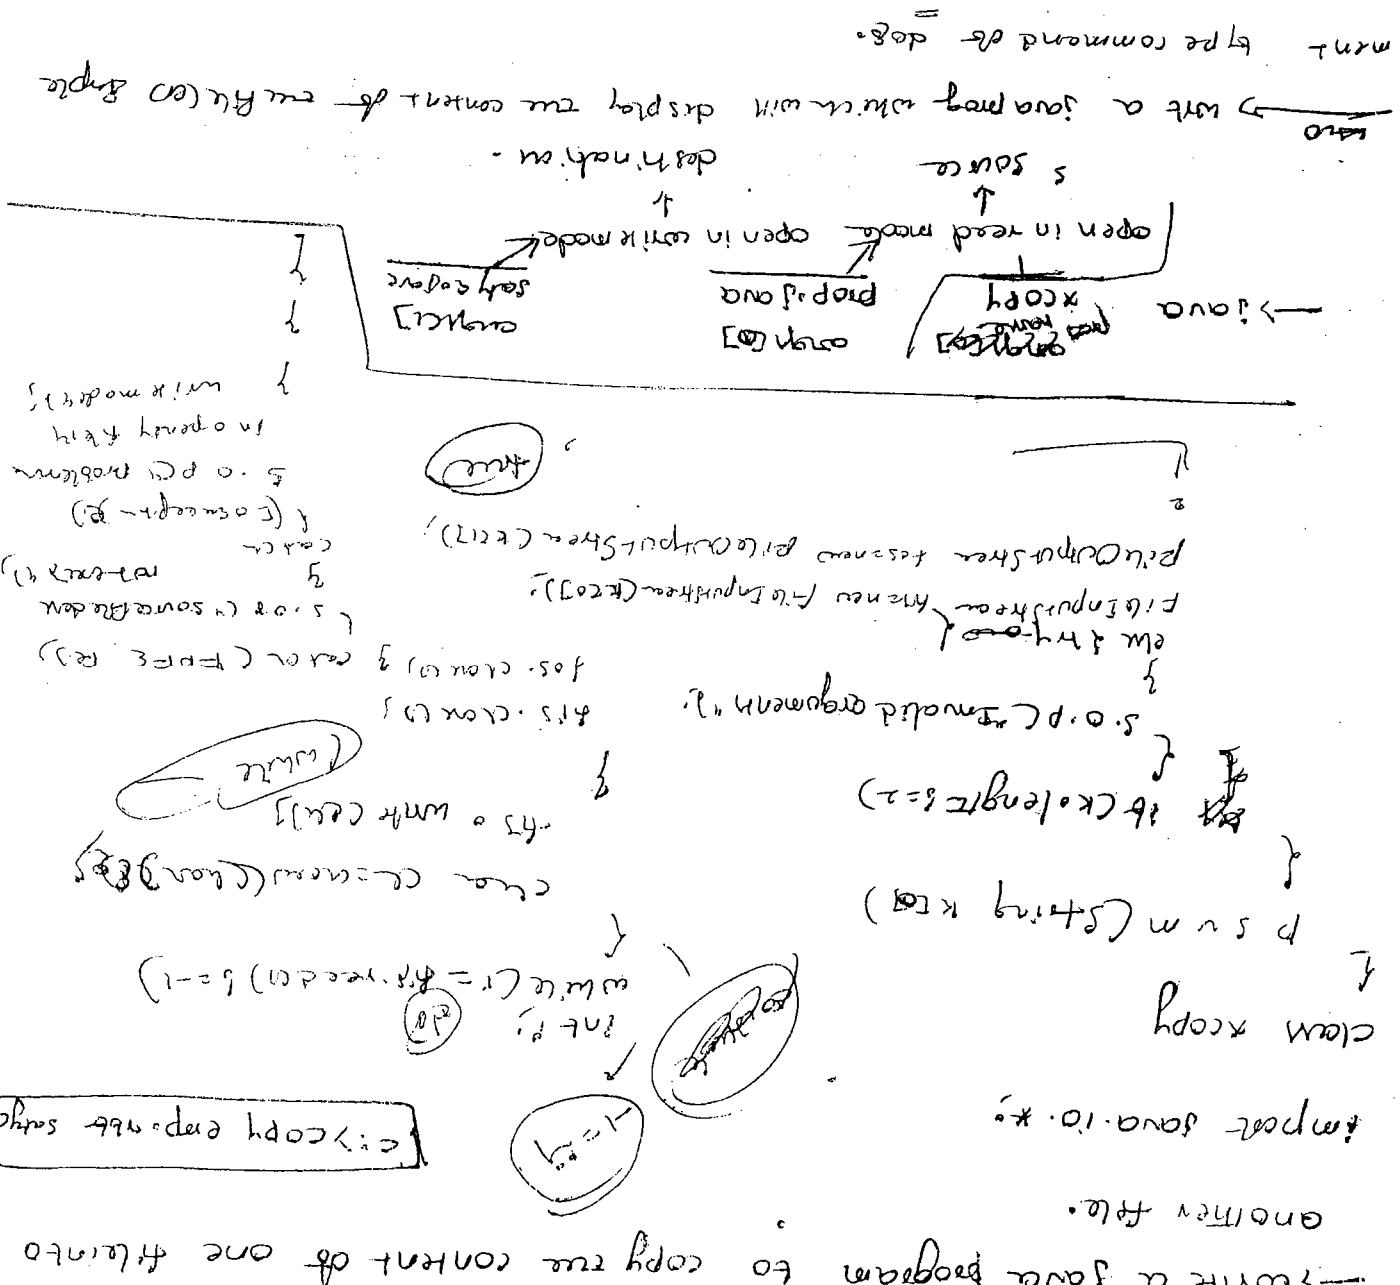 → write a java program to copy the content of one file into
another file.
import java.io.*;
c:\>copy emp.
class xcopy
{
p s v m (String k[])
{
if (k.length != 2)
{
S.o.p("Invalid arguments");
}
else { try {
FileInputStream fis=new FileInputStream(k[0]);
FileOutputStream fos=new FileOutputStream(k[1]);
true
i = -1
int i; do
while (i = fis.read()) != -1)
{
char ch=(char)
fos.write(ch)
}
while
fis.close();
fos.close(); } catch (FNFE fe)
{ S.op("source file does
not exist");
}
catch
(Exception e)
{
S.o.p("problem
in opening file in
write mode");
}
}
}
→ java xcopy prop.java
prog name
arg[0] arg[1]
open in read mode open in write mode
source destination
→ wrt a java prog which will display the content of the file(or) Imple
ment type command of dos.